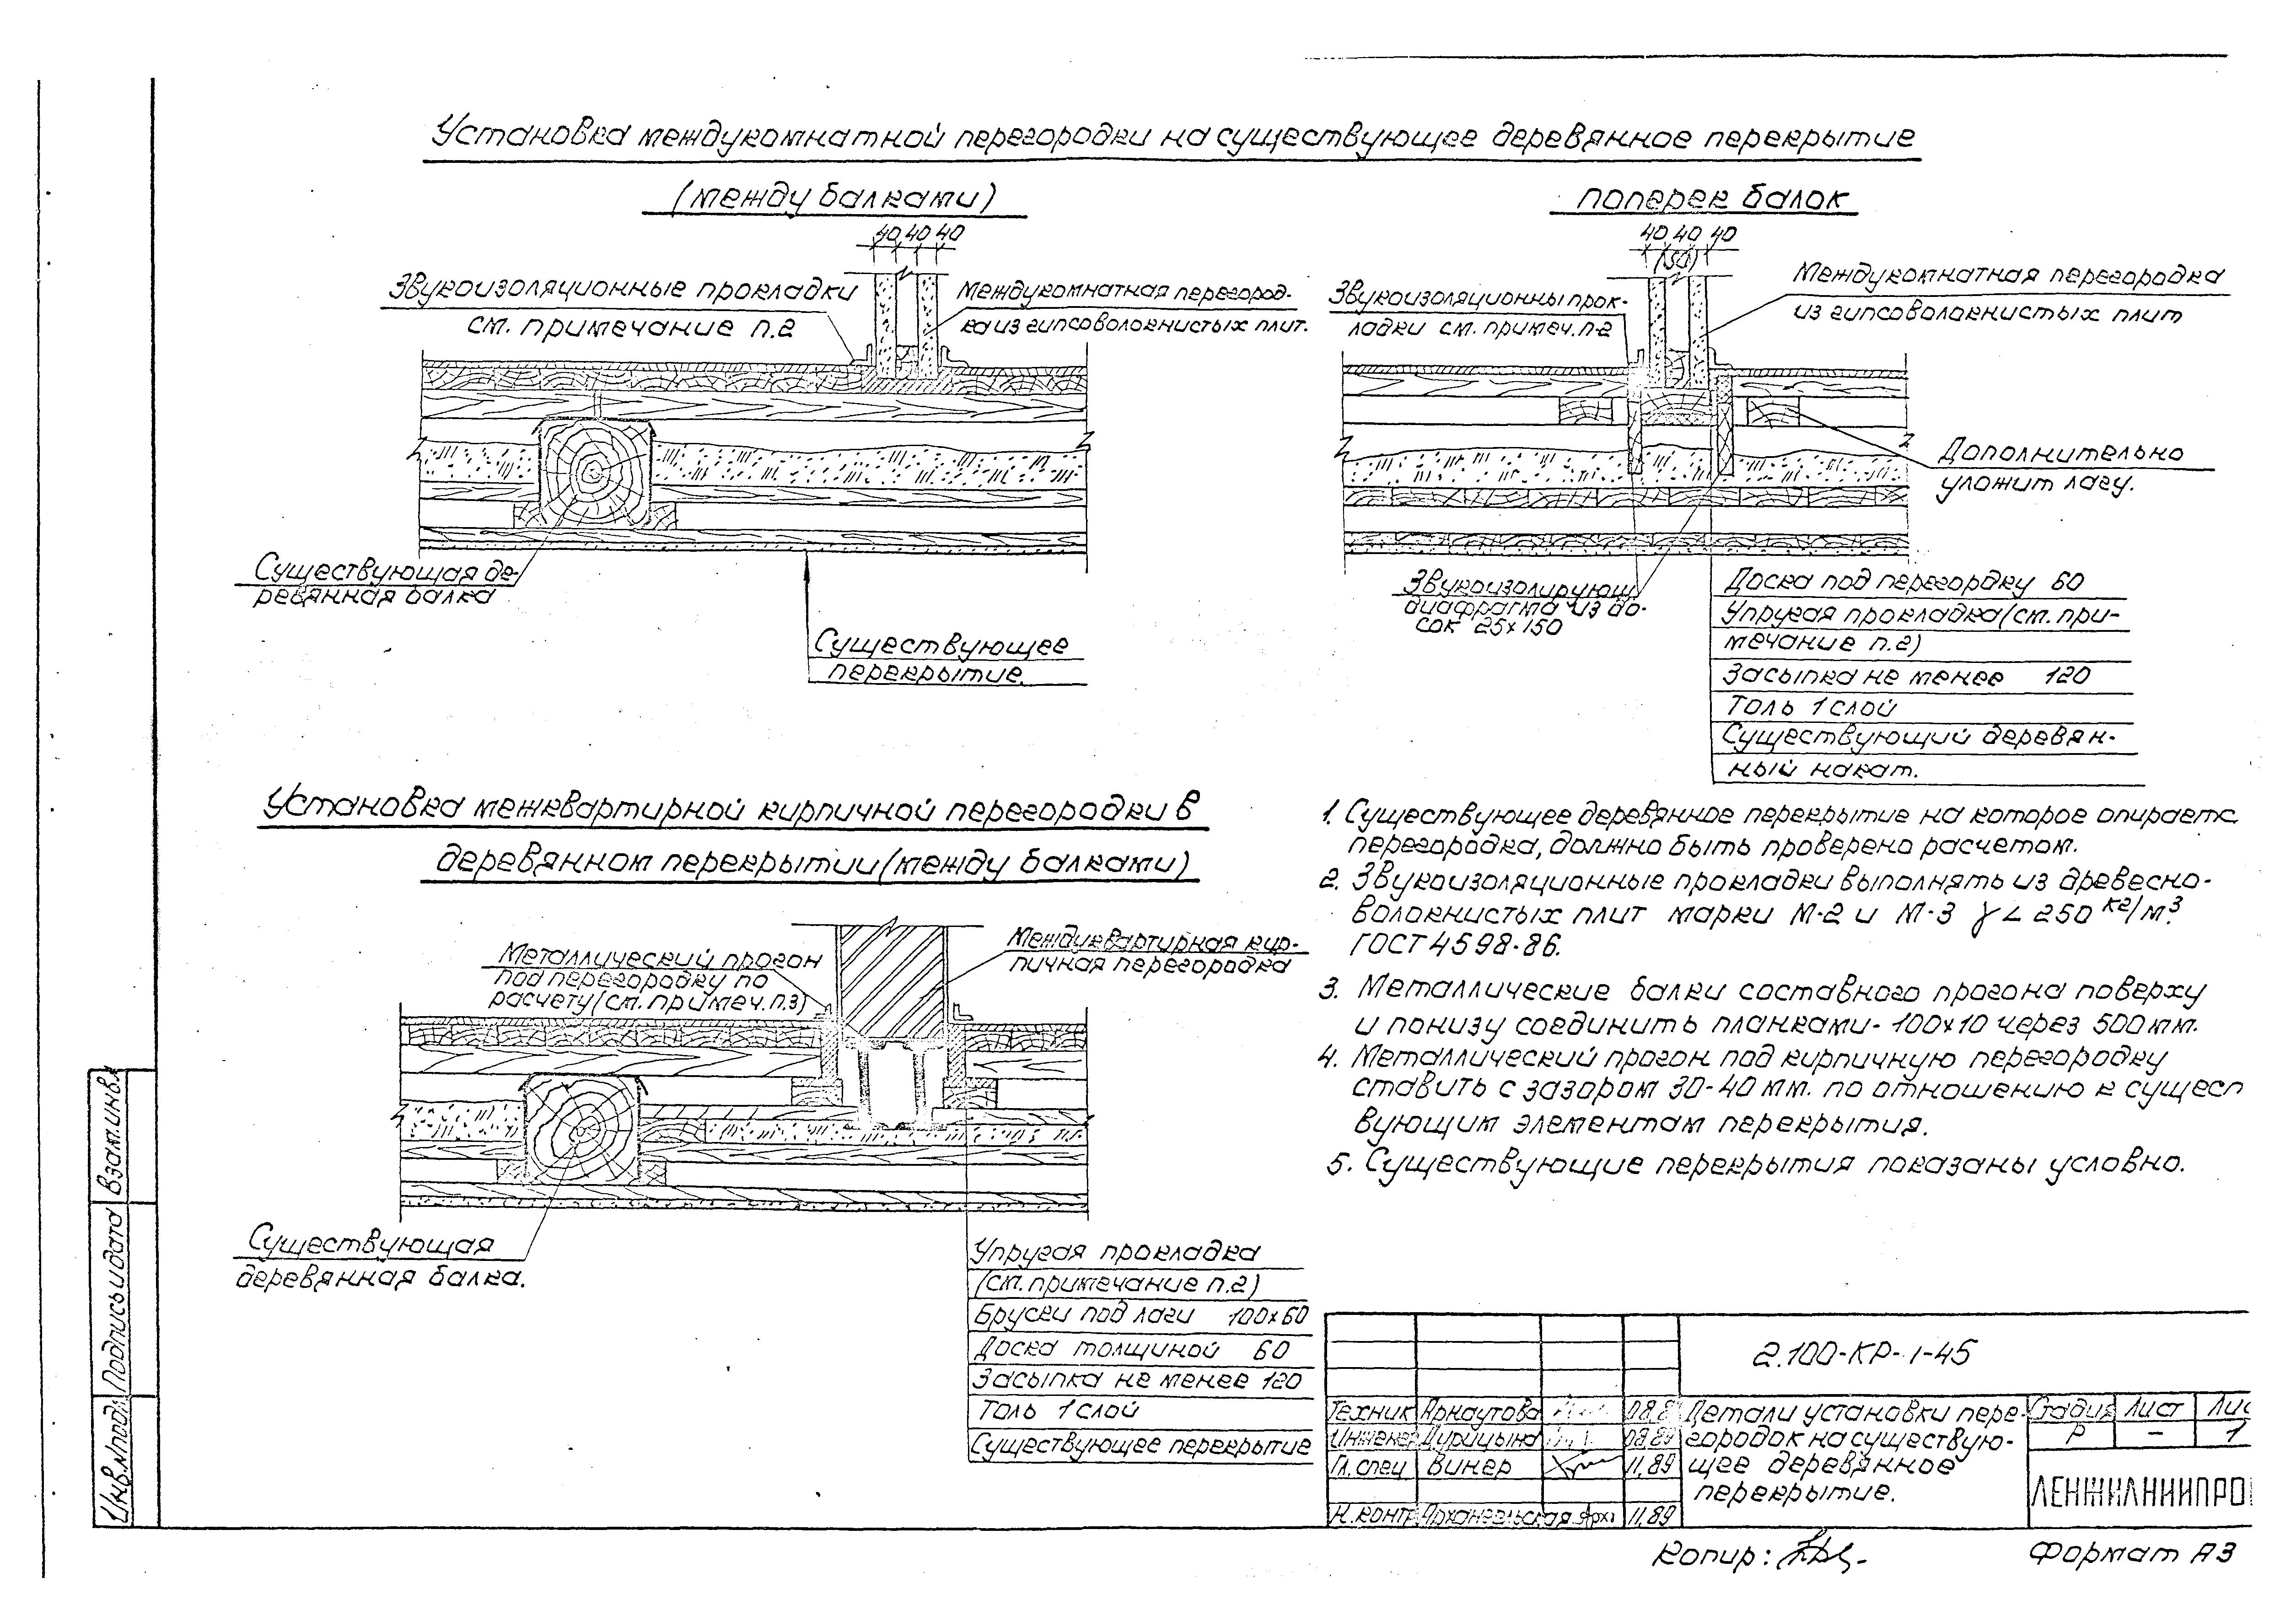 Установка междукомнатной перегородки на существующее деревянное перекрытие
(между балками)
поперек балок
40 40 40
Звукоизоляционные прокладки
см. примечание п.2
Междукомнатная перегород-
ка из гипсоволокнистых плит.
Существующая де-
ревянная балка
Существующее
перекрытие.
40 40 40
(50)
Звукоизоляционны прок-
ладки см. примеч. п-2
Междукомнатная перегородка
из гипсоволокнистых плит
Дополнительно
уложит лагу.
Звукоизолирующ.
диафрагма из до-
сок 25х150
Доска под перегордку 60
Упругая прокладка (см. при-
мечание п.2)
Засыпка не менее 120
Толь 1 слой
Существующий деревян-
ный накат.
Установка межквартирной кирпичной перегородки в
деревянном перекрытии (между балками)
Металлический прогон
под перегородку по
расчету (см. примеч. п.3)
Междуквартирная кир-
пичная перегородка
Существующая
деревянная балка.
Упругая прокладка
(см. примечание п.2)
Бруски под лаги 100х60
Доска толщиной 60
Засыпка не менее 120
Толь 1 слой
Существующее перекрытие
1. Существующее деревянное перекрытие на которое опираетс
перегородка, должно быть проверено расчетом.
2. Звукоизоляционные прокладки выполнять из древесно-
волокнистых плит марки М-2 и М-3 γ < 250 кг/м³
ГОСТ 4598-86.
3. Металлические балки составного прогона поверху
и понизу соединить планками - 100х10 через 500 мм.
4. Металлический прогон под кирпичную перегородку
ставить с зазором 30-40 мм. по отношению к сущест
вующим элементам перекрытия.
5. Существующие перекрытия показаны условно.
2.100-КР-1-45
Техник Арнаутова 08.8
Инженер Дурицына 08.89
Гл. спец Винер 11.89
Н. контр Архангельская 11.89
Детали установки пере-
городок на существую-
щее деревянное
перекрытие.
Стадия Лист Лис
Р – 1
ЛЕНЖИЛНИИПРО
Взам. инв.
Подпись и дата
Инв. № подл
Копир:
Формат А3